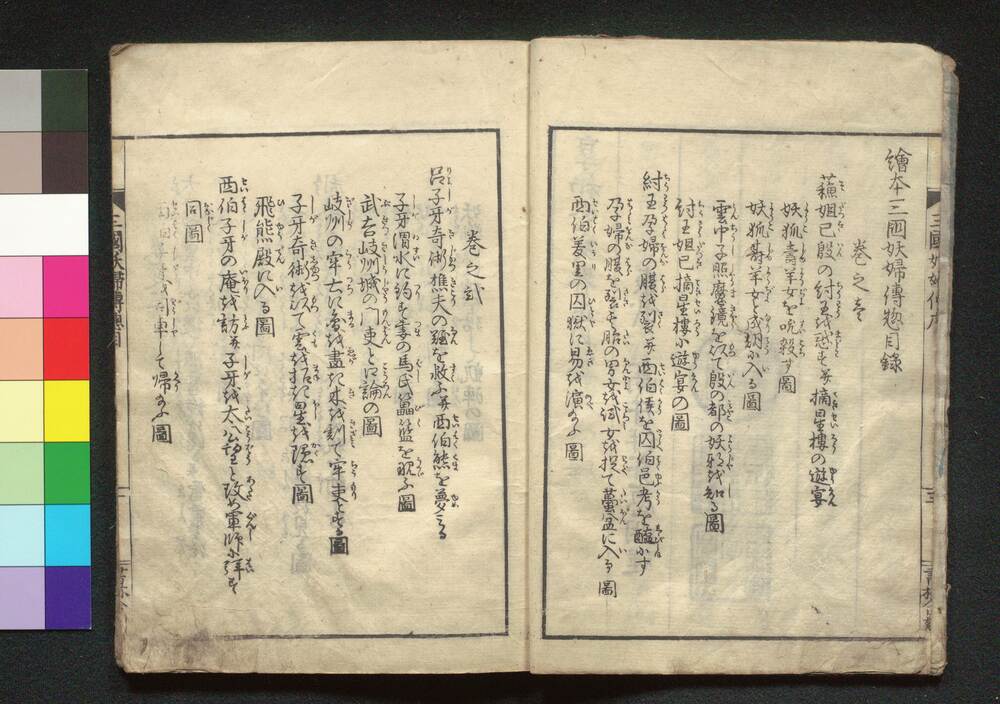 繪本三國妖婦傳惣目録
巻之壱
蘓妲已殷の紂王を惑す并摘星樓の遊宴
妖狐壽羊女を呪殺す圖
妖狐壽羊女と成朝に入る圖
雲中子照魔鏡を以て殷の都の妖邪を知る圖
紂王妲已摘星樓に遊宴の圖
紂王孕婦の腹を裂并西伯侯を囚伯邑考を醢にす
孕婦の腹を裂き胎の男女を試女を捉て蠆盆に入る圖
西伯羑里の囚獄に易を演たまふ圖
巻之弐
呂子牙奇術樵夫の難を救ふ并西伯熊を夢みる
子牙渭水に釣す妻の馬氏籃を覗ふ圖
武吉岐州城の門吏と口論の圖
岐州の牢
子牙奇術を以て雲を起し星を隠す圖
飛熊殿に入る圖
西伯子牙の庵を訪并子牙を太公望と改め軍師に拝す
同圖
車して帰たまふ圖
三國妖婦傳惣目